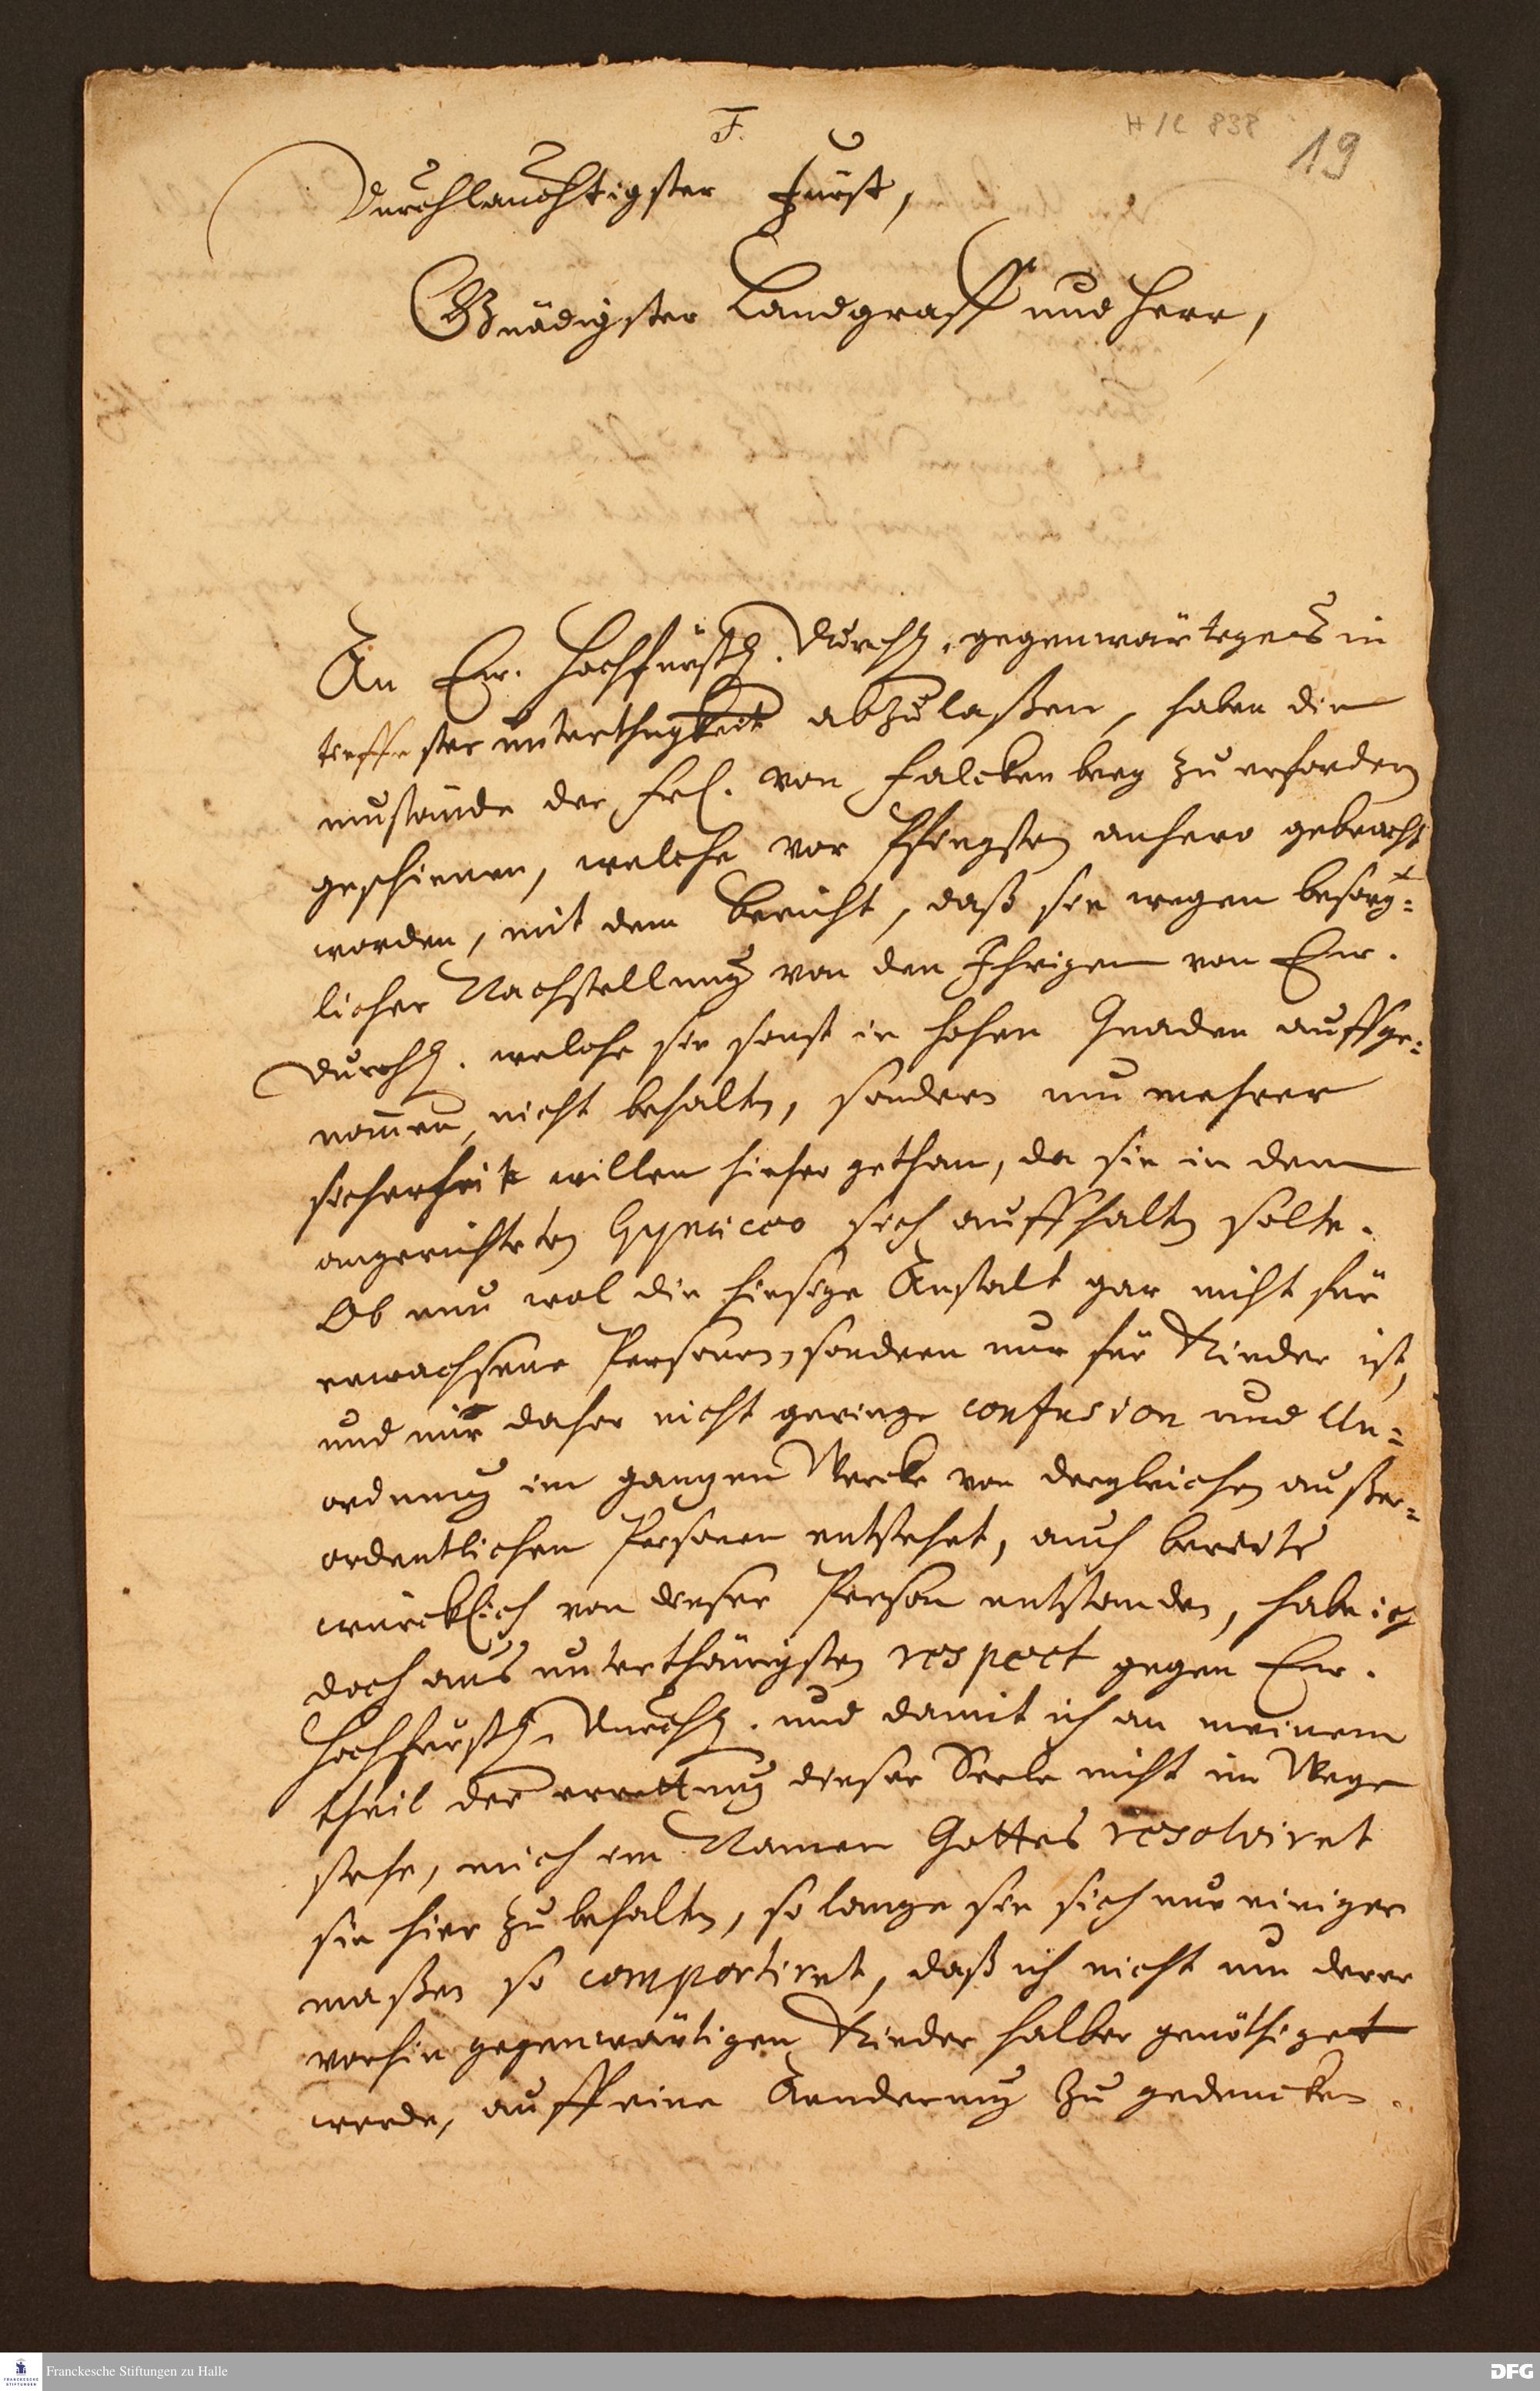 F.
H/C 838
19
Durchlauchtigster Fürst,
Gnädigster Landgraff und Herr,
An Ew. Hochfürstl. Durchl. gegenwärtiges in
tieffester unterthngkeit abzulaßen, haben die
umstände der Frl. von Falckenberg zu erfordern
geschienen, welche vor Pfingsten anhero gebracht
worden, mit dem bericht, daß sie wegen besorg=
licher Nachstellung von den Ihrigen von Ew.
Durchl. welche sie sonst in hohen Gnaden auffge=
nom̄en, nicht behalten, sondern um mehrer
sicherheit willen hieher gethan, da sie in dem
angerichteten Gynaeceo sich auffhalten solte.
Ob nun wol die hiesige Anstalt gar nicht für
erwachsene Personen, sondern nur für Kinder ist,
und mir daher nicht geringe confusion und Un=
ordnung im gantzen Wercke von dergleichen außer=
ordentlichen Personen entstehet, auch bereits
würcklich von dieser Person entstanden, habe ich
doch aus unterthänigsten respect gegen Ew.
Hochfürstl. Durchl. und damit ich an meinem
theil der errettung dieser Seele nicht im Wege
stehe, mich im Namen Gottes resolviret
sie hier zu behalten, so lange sie sich nur einiger
maßen so comportiret, daß ich nicht um derer
vorhin gegenwärtigen Kinder halber genöthiget
werde, auff eine Aenderung zu gedencken.
Franckesche Stiftungen zu Halle
FRANCKESCHE
STIFTUNGEN
DFG